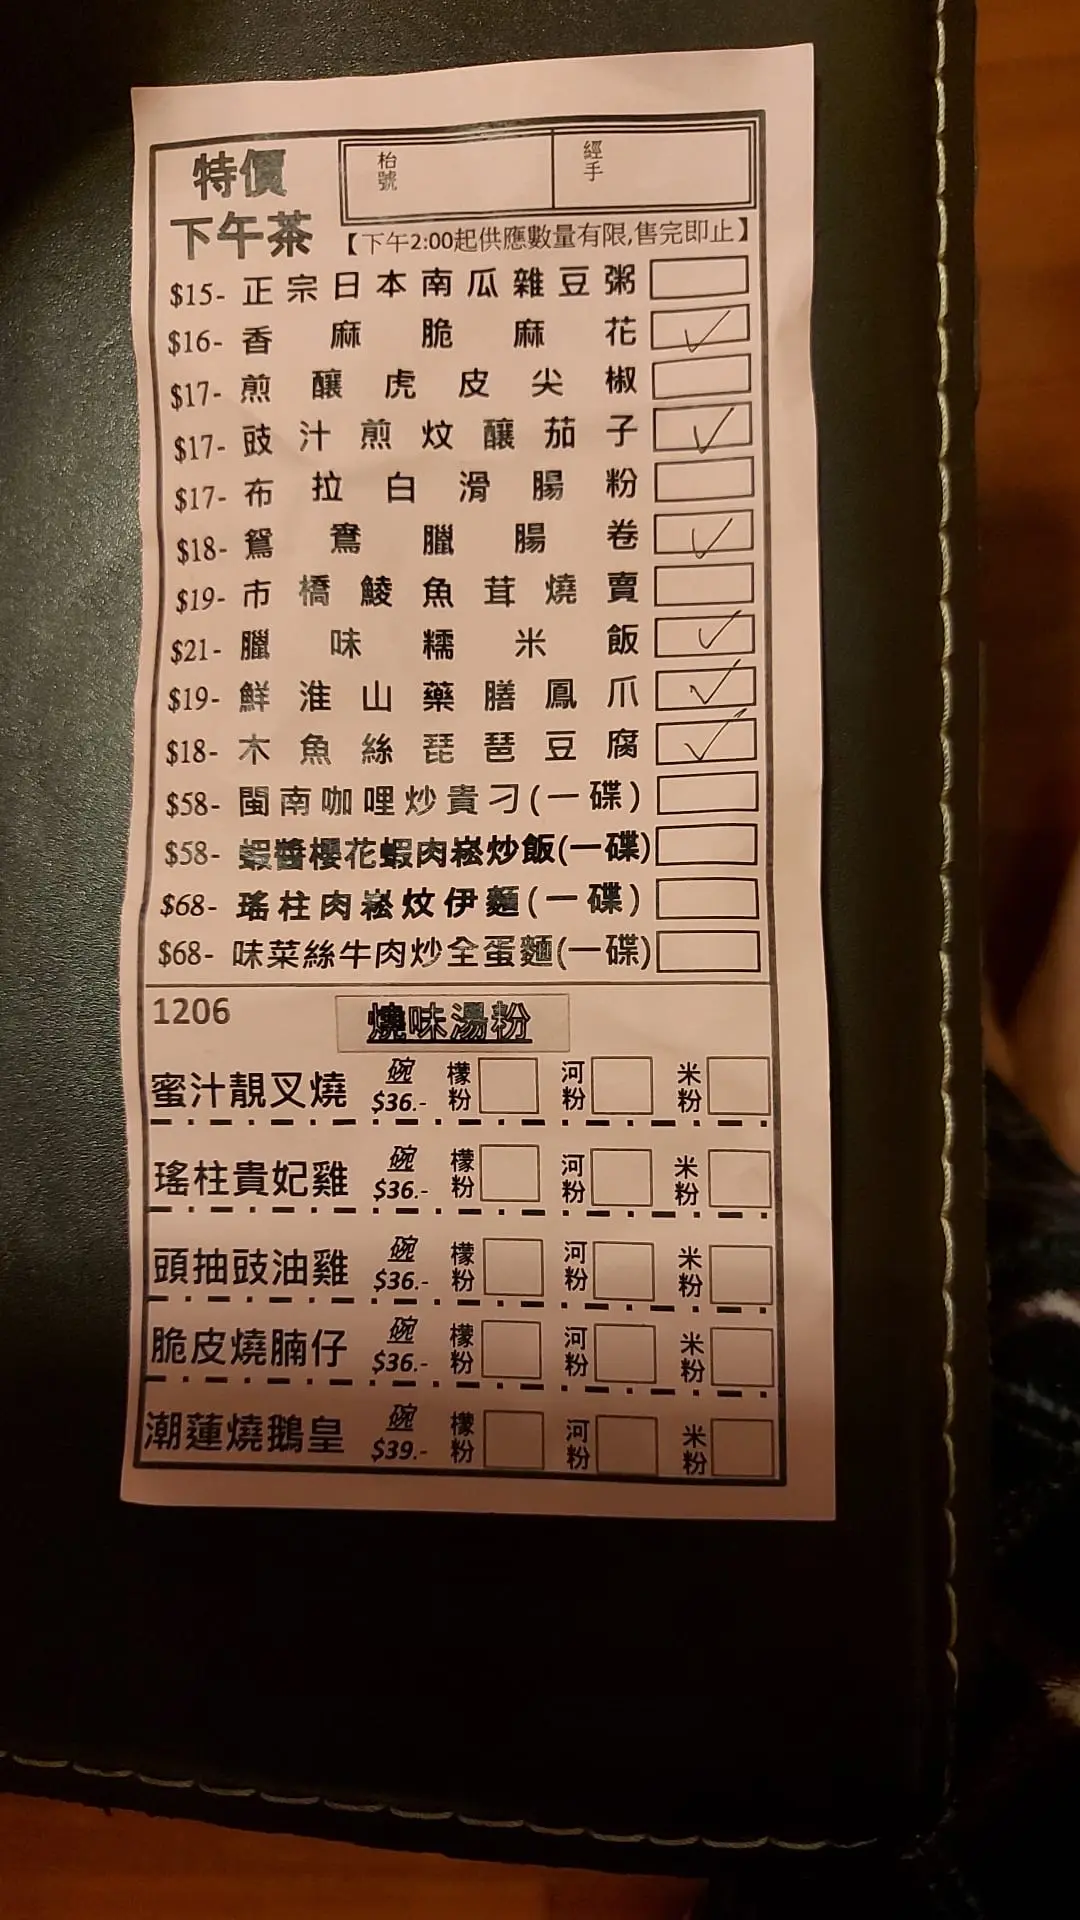 特價
下午茶
枱號
經手
【下午2:00起供應數量有限,售完即止】
$15- 正宗日本南瓜雜豆粥
$16- 香麻脆麻花 ✓
$17- 煎釀虎皮尖椒
$17- 豉汁煎炆釀茄子 ✓
$17- 布拉白滑腸粉
$18- 鴛鴦臘腸卷 ✓
$19- 市橋鯪魚茸燒賣
$21- 臘味糯米飯 ✓
$19- 鮮淮山藥膳鳳爪 ✓
$18- 木魚絲琵琶豆腐 ✓
$58- 閩南咖哩炒貴刁(一碟)
$58- 蝦醬櫻花蝦肉崧炒飯(一碟)
$68- 瑤柱肉崧炆伊麵(一碟)
$68- 味菜絲牛肉炒全蛋麵(一碟)
1206
燒味湯粉
蜜汁靚叉燒 碗 $36.- 檬粉 河粉 米粉
瑤柱貴妃雞 碗 $36.- 檬粉 河粉 米粉
頭抽豉油雞 碗 $36.- 檬粉 河粉 米粉
脆皮燒腩仔 碗 $36.- 檬粉 河粉 米粉
潮蓮燒鵝皇 碗 $39.- 檬粉 河粉 米粉